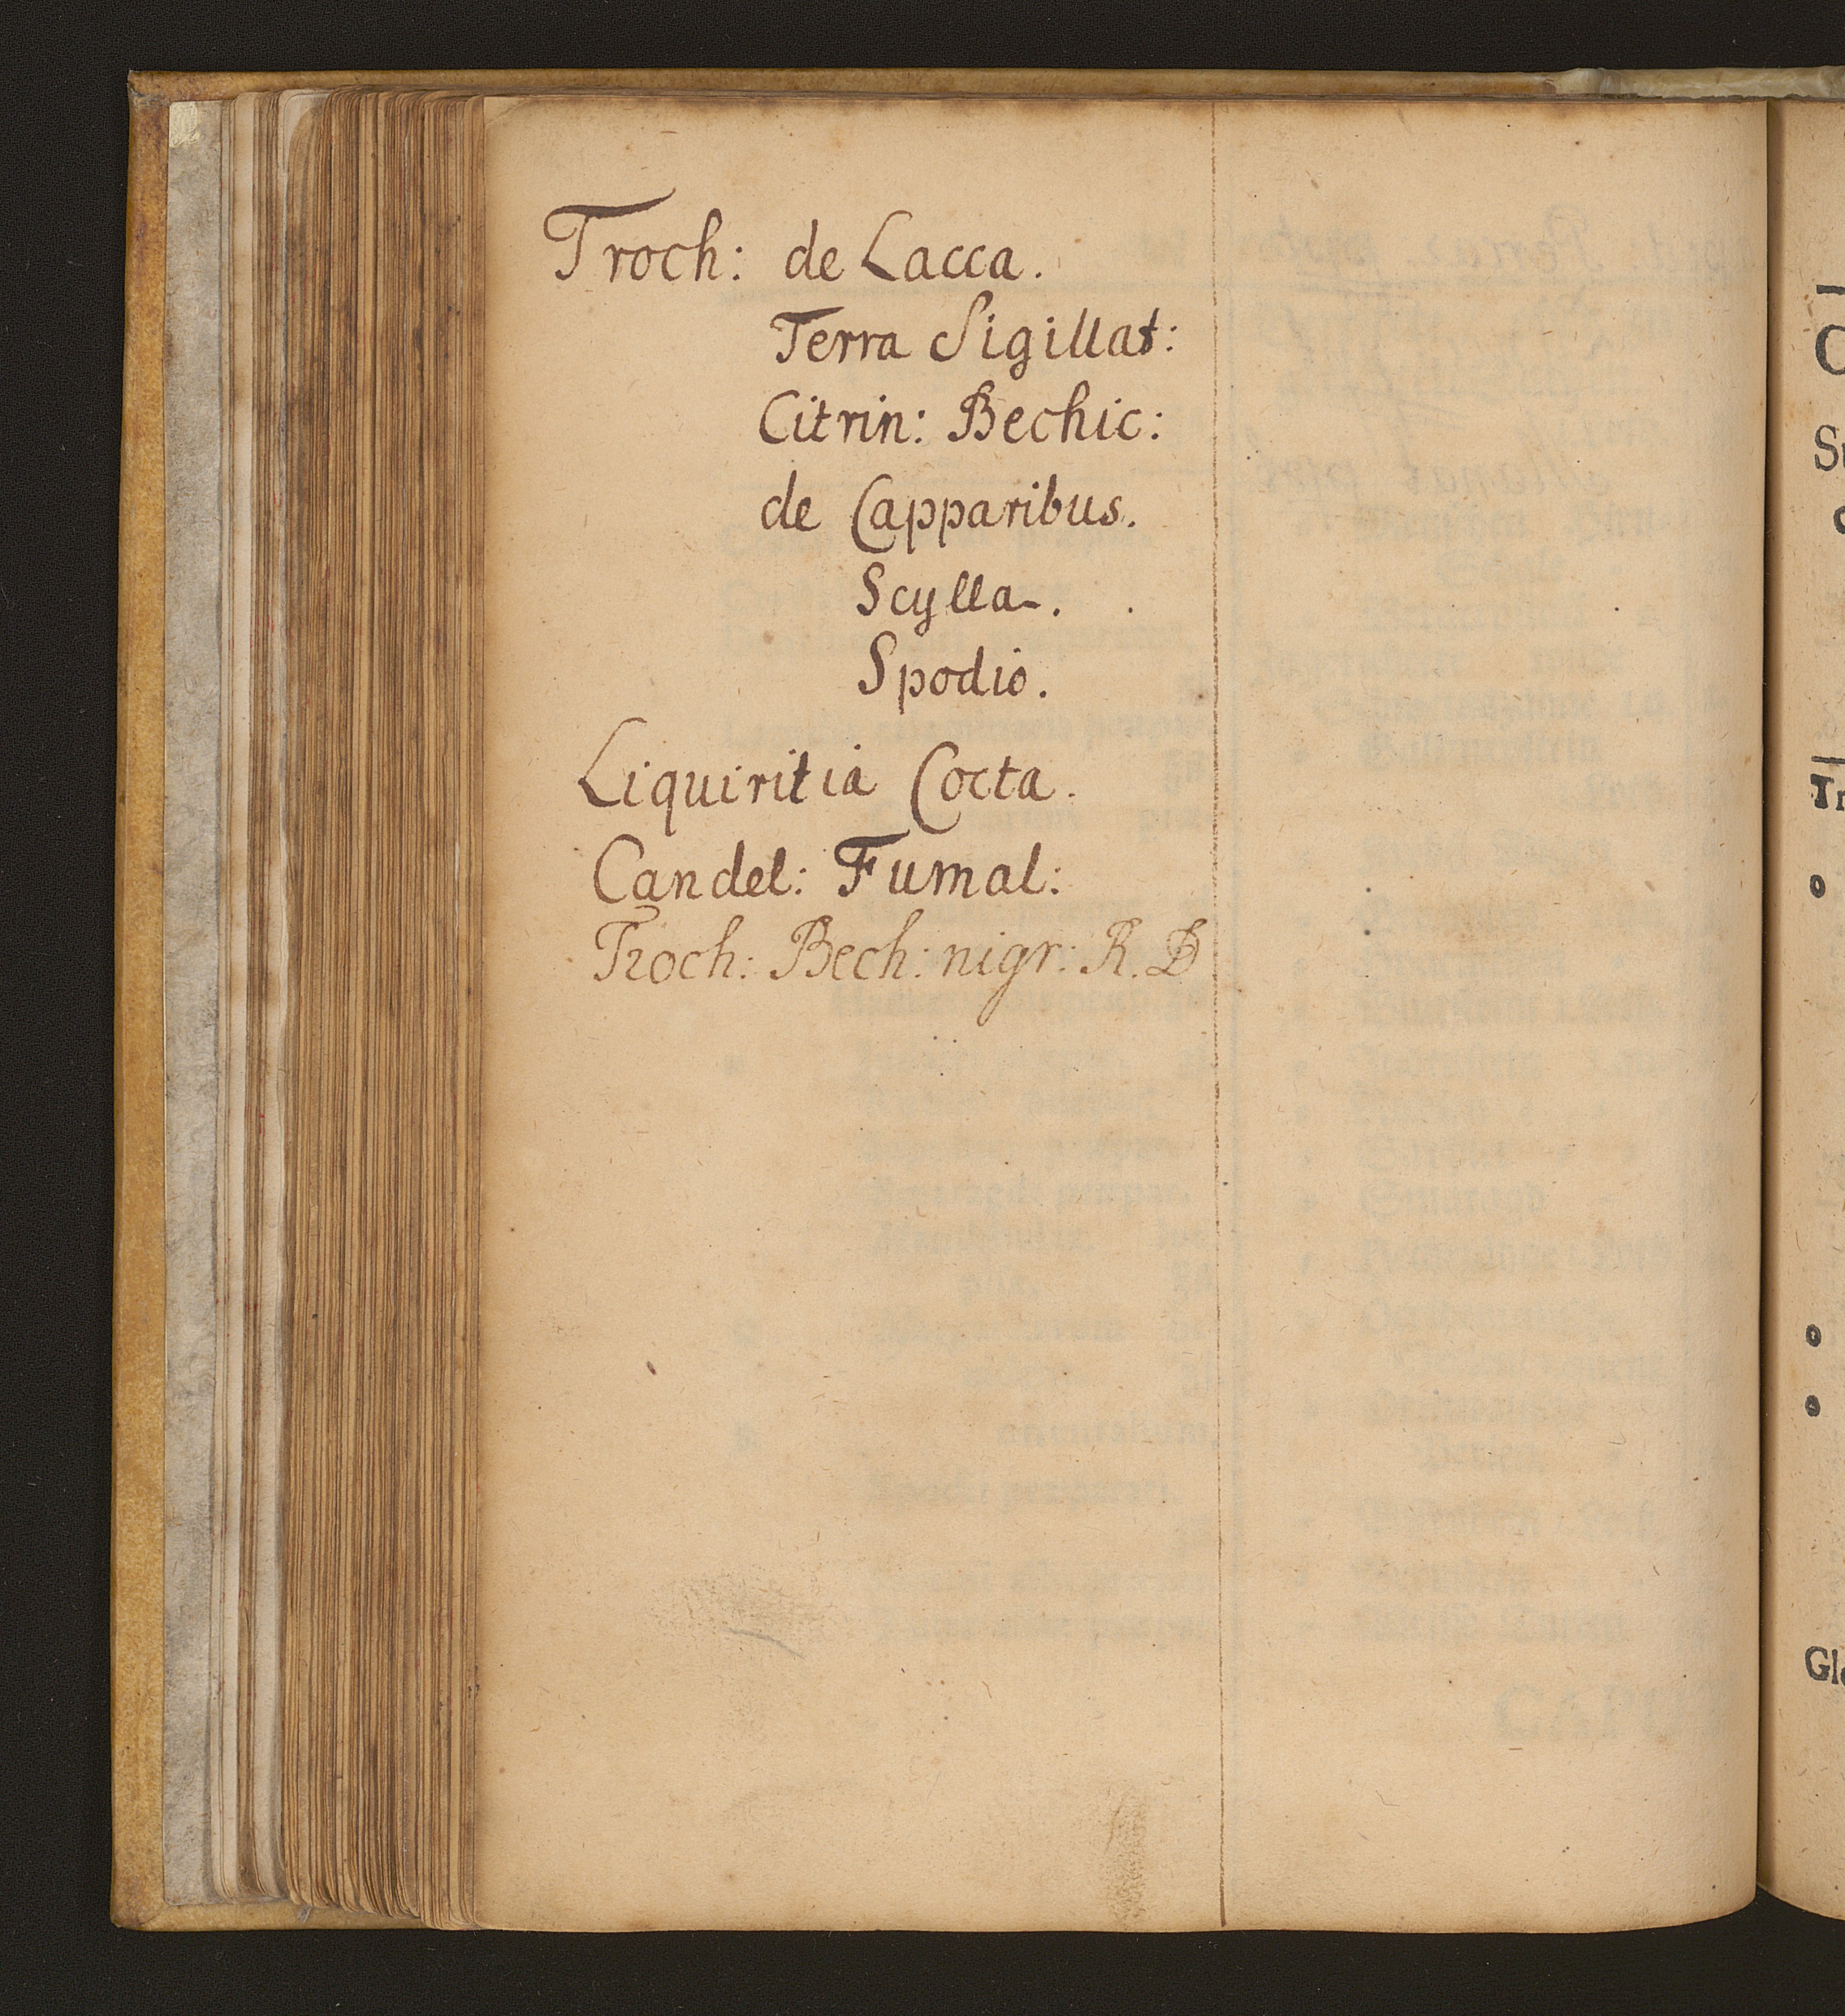 Troch: de Lacca.
Terra Sigillat:
Citrin: Bechic:
de Capparibus.
Scylla.
Spodio.
Liquiritia Cocta.
Candel: Fumal:
Troch: Bech: nigr: R. D